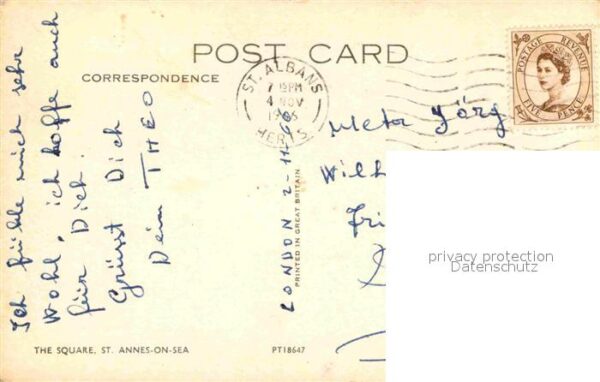 POST CARD
CORRESPONDENCE
Ich fühle mich sehr
Wohl, ich hoffe auch
für Dich.
Grüsst Dich
Dein THEO
LONDON 2-11-66
PRINTED IN GREAT BRITAIN
ST. ALBANS
7 PM
4 NOV
1966
HERTS.
POSTAGE REVENUE
FIVE PENCE
Meta Jörg
Wilh
Fri
privacy protection
Datenschutz
THE SQUARE, ST. ANNES-ON-SEA
PT18647